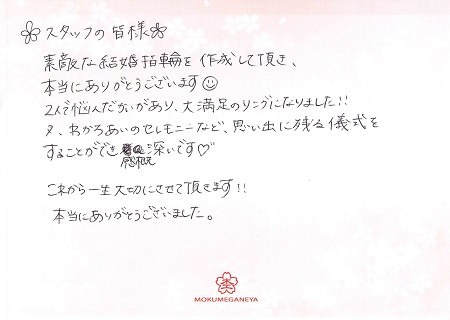 スタッフの皆様
素敵な結婚指輪を作成して頂き、
本当にありがとうございます
2人で悩んだかいがあり、大満足のリングになりました!!
又、わかちあいのセレモニーなど、思い出に残る儀式を
することができ感慨深いです♡
これから一生大切にさせて頂きます!!
本当にありがとうございました。
MOKUMEGANEYA